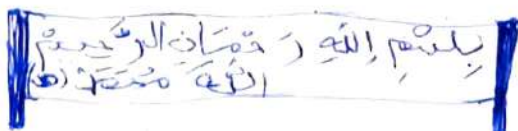 بِسْمِ اللهِ رَحْمَانِ الرَّحِيمْ
اللهْ مُحَمَّدْ (ص)